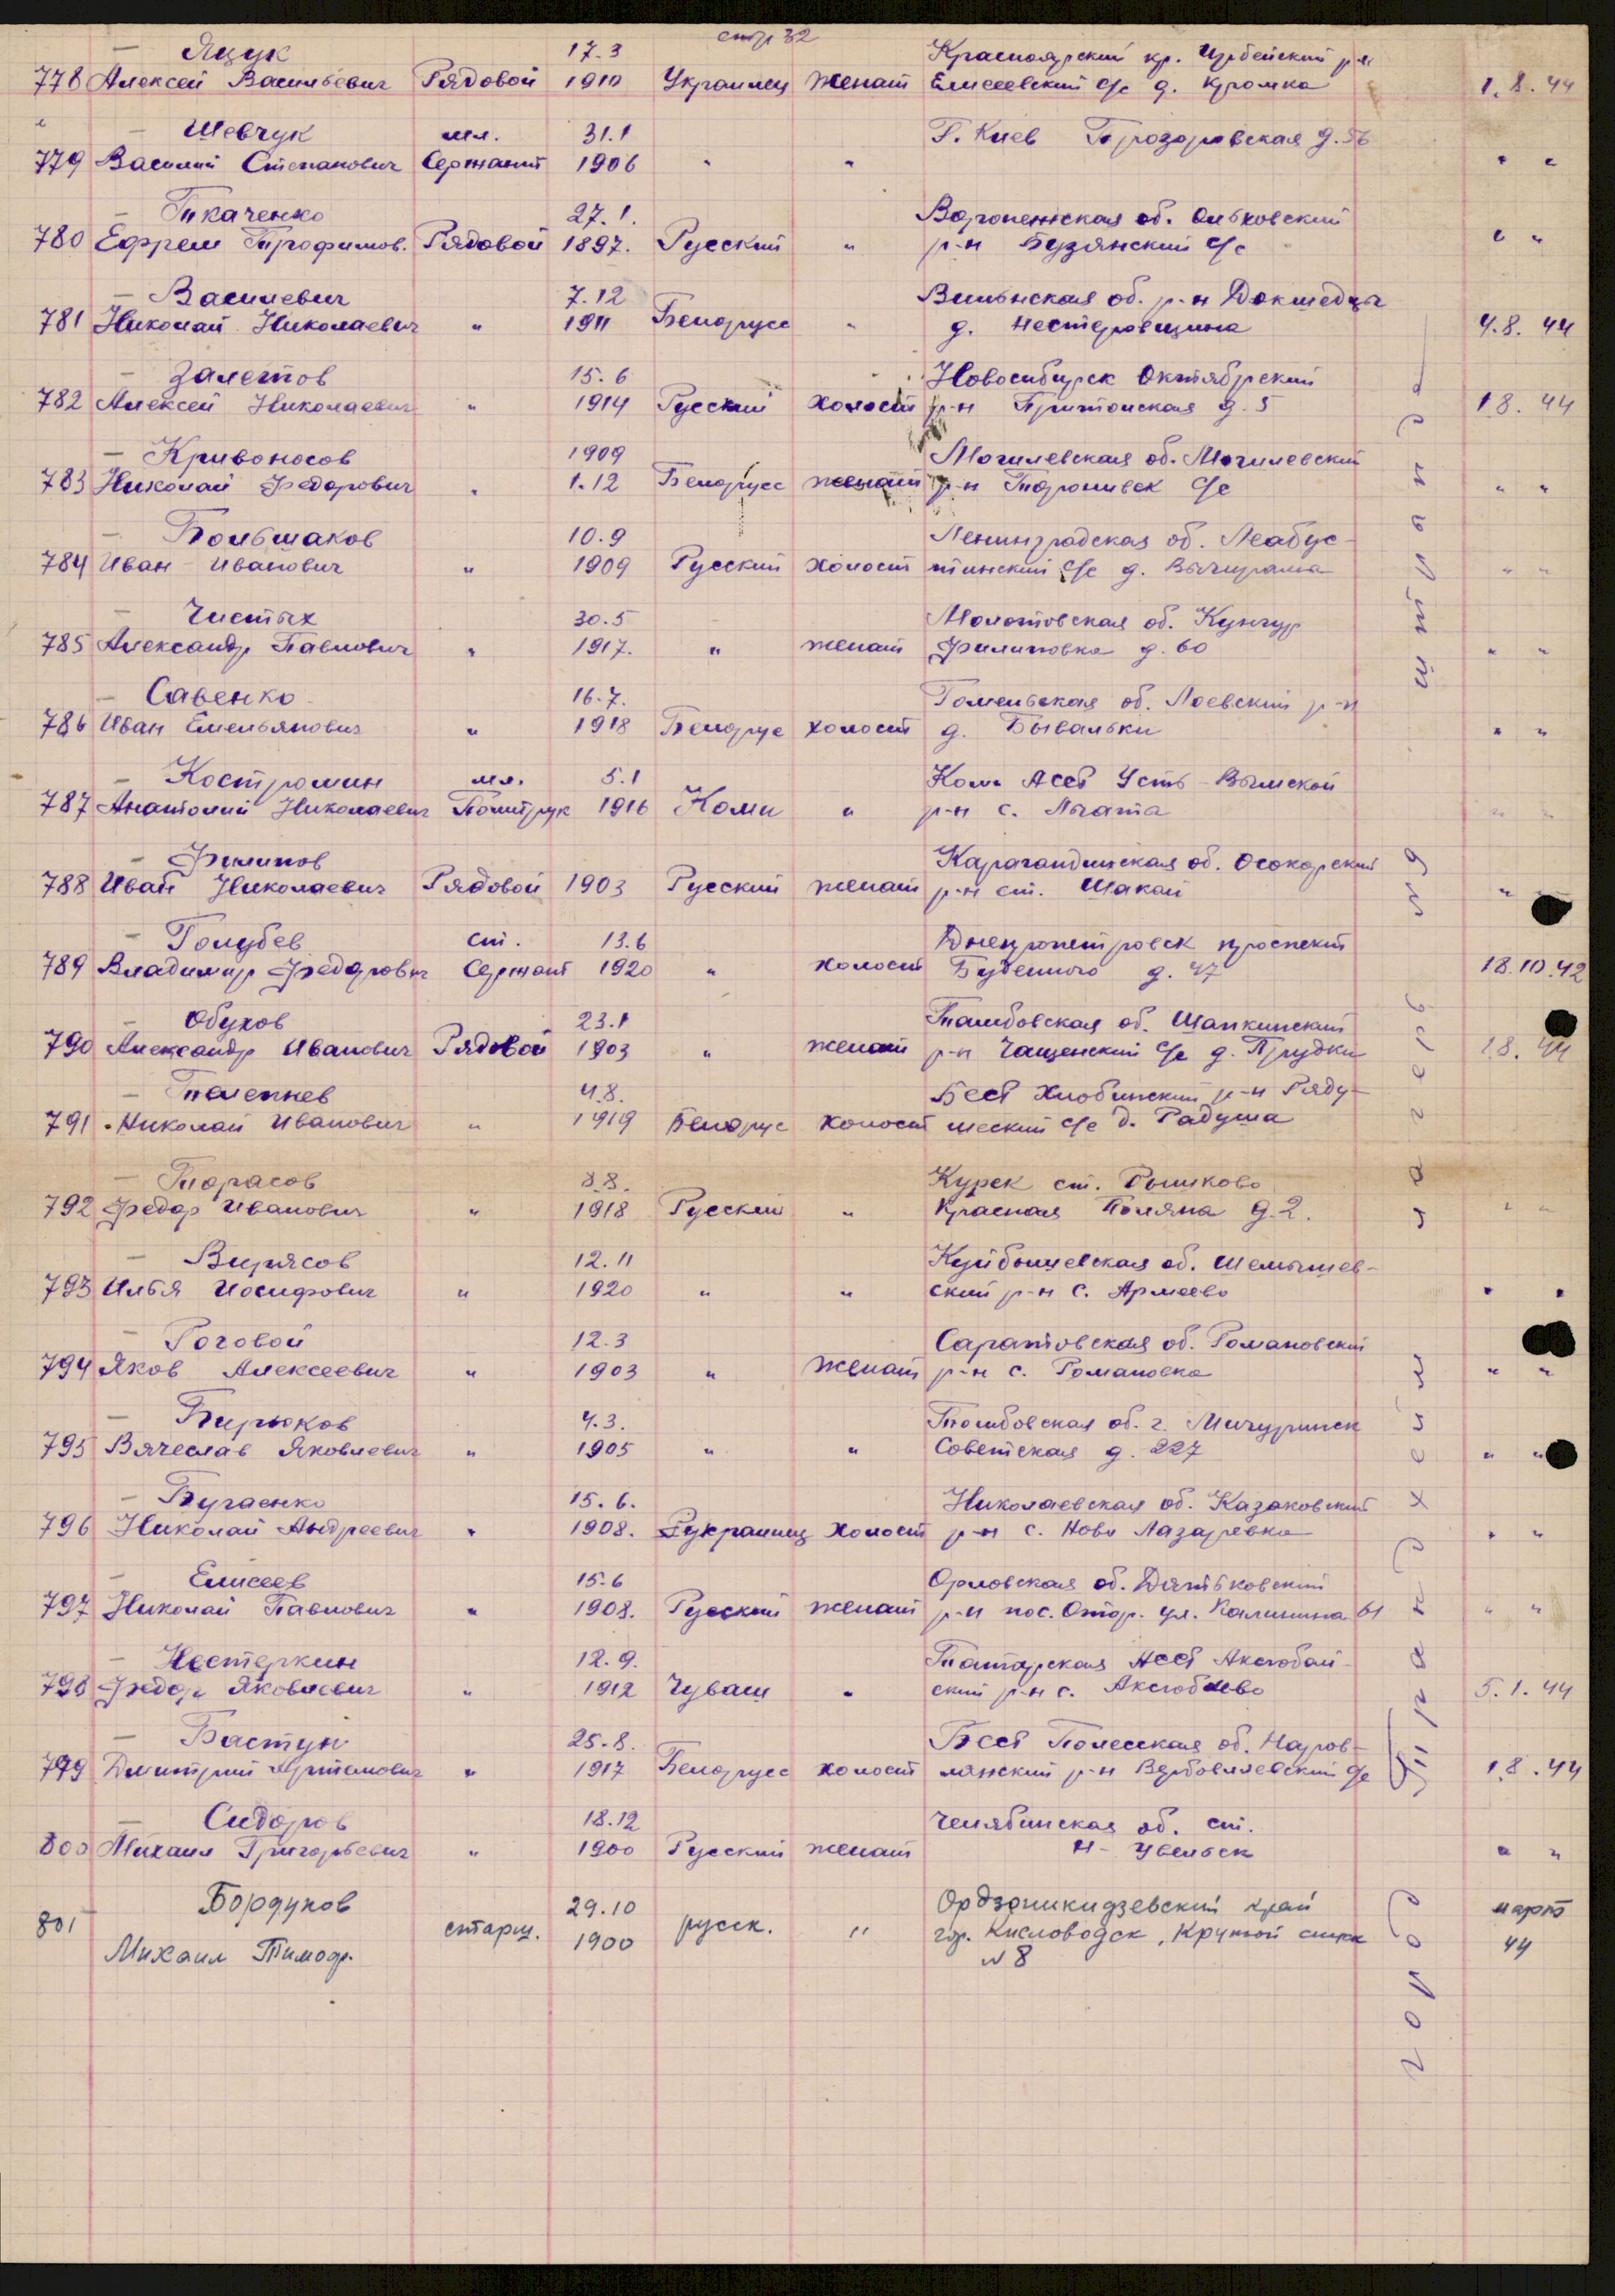 стр 32
— Яцук 17.3 Красноярский кр. Ирбейский р-н
778 Алексей Васильевич Рядовой 1910 Украинец женат Елисеевский с/с д. Громка 1.8.44
— Шевчук мл. 31.1 Г. Киев Прозоровская д. 56
779 Василий Степанович Сержант 1906 " " " "
— Ткаченко 27.1. Воронежская об. Ольховский
780 Ефрем Трофимов. Рядовой 1897. Русский " р-н Бузянский с/с " "
— Василевич 7.12 Вильнская об. р-н Докшедцы
781 Николай Николаевич " 1911 Белорусс " д. Нестеровщина 4.8.44
— Залетов 15.6 Новосибирск Октябрский
782 Алексей Николаевич " 1914 Русский холост р-н Притомская д. 5 1.8.44
— Кривоносов 1909 Могилевская об. Могилевский
783 Николай Федорович " 1.12 Белорусс женат р-н с/с " "
— Большаков 10.9 Ленинградская об.
784 Иван Иванович " 1909 Русский холост тинский с/с д. " "
— Чистых 30.5 Молотовская об. Кунгур
785 Александр Павлович " 1917. " женат Филиповка д. 60 " "
— Савенко 16.7. Гомельская об. Лоевский р-н
786 Иван Емельянович " 1918 Белорус холост д. Бывальки " "
— Костромин мл. 5.1 Коми АССР Усть-Вымской
787 Анатолий Николаевич Политрук 1916 Коми " р-н с. Лыата " "
— Филипов Карагандинская об. Осокарский
788 Иван Николаевич Рядовой 1903 Русский женат р-н ст. Шакай "
— Голубев ст. 13.6 Днепропетровск проспект
789 Владимир Федорович Сержант 1920 " холост Буденного д. 47 18.10.42
— Обухов 23.1 Тамбовская об. Шапкинский
790 Александр Иванович Рядовой 1903 " женат р-н Чащенский с/с д. Прудки 1.8.44
— Телепнев 4.8. БССР Жлобинский р-н Ряду-
791 Николай Иванович " 1919 Белорус холост шеский с/с д. Радуша
— Торасов 8.8. Курск ст. Рышково
792 Федор Иванович " 1918 Русский " Красная Поляна д. 2. " "
— Вирясов 12.11 Куйбышевская об. Шемышев-
793 Илья Иосифович " 1920 " " ский р-н с. Армеево " "
— Роговой 12.3 Саратовская об. Романовский
794 Яков Алексеевич " 1903 " женат р-н с. Романовка " "
— Бирюков 4.3. Тамбовская об. г. Мичуринск
795 Вячеслав Яковлевич " 1905 " " Советская д. 227 " "
— Бугаенко 15.6. Николаевская об. Казаковский
796 Николай Андреевич " 1908. украинец холост р-н с. Ново Лазаревка " "
— Елисеев 15.6 Орловская об. Дятьковский
797 Николай Павлович " 1908. Русский женат р-н пос. ул. Калинина 61 " "
— Нестеркин 12.9. Татарская АССР Аксюбай-
798 Федор Яковлевич " 1912 Чуваш " ский р-н с. Аксюбаево 5.1.44
— Бастун 25.8. БССР Полесская об. Наров-
799 Дмитрий Артемович " 1917 Белорусс холост лянский р-н с/с 1.8.44
— Сидоров 18.12 Челябинская об. ст.
800 Михаил Григорьевич " 1900 Русский женат Н-Увельск " "
Бордуков 29.10 Орджоникидзевский край март
801 Михаил Тимоф. старш. 1900 русск. " гор. Кисловодск, Крутой спуск 44
№ 8
город Тронхейм лагерь №9 штранда